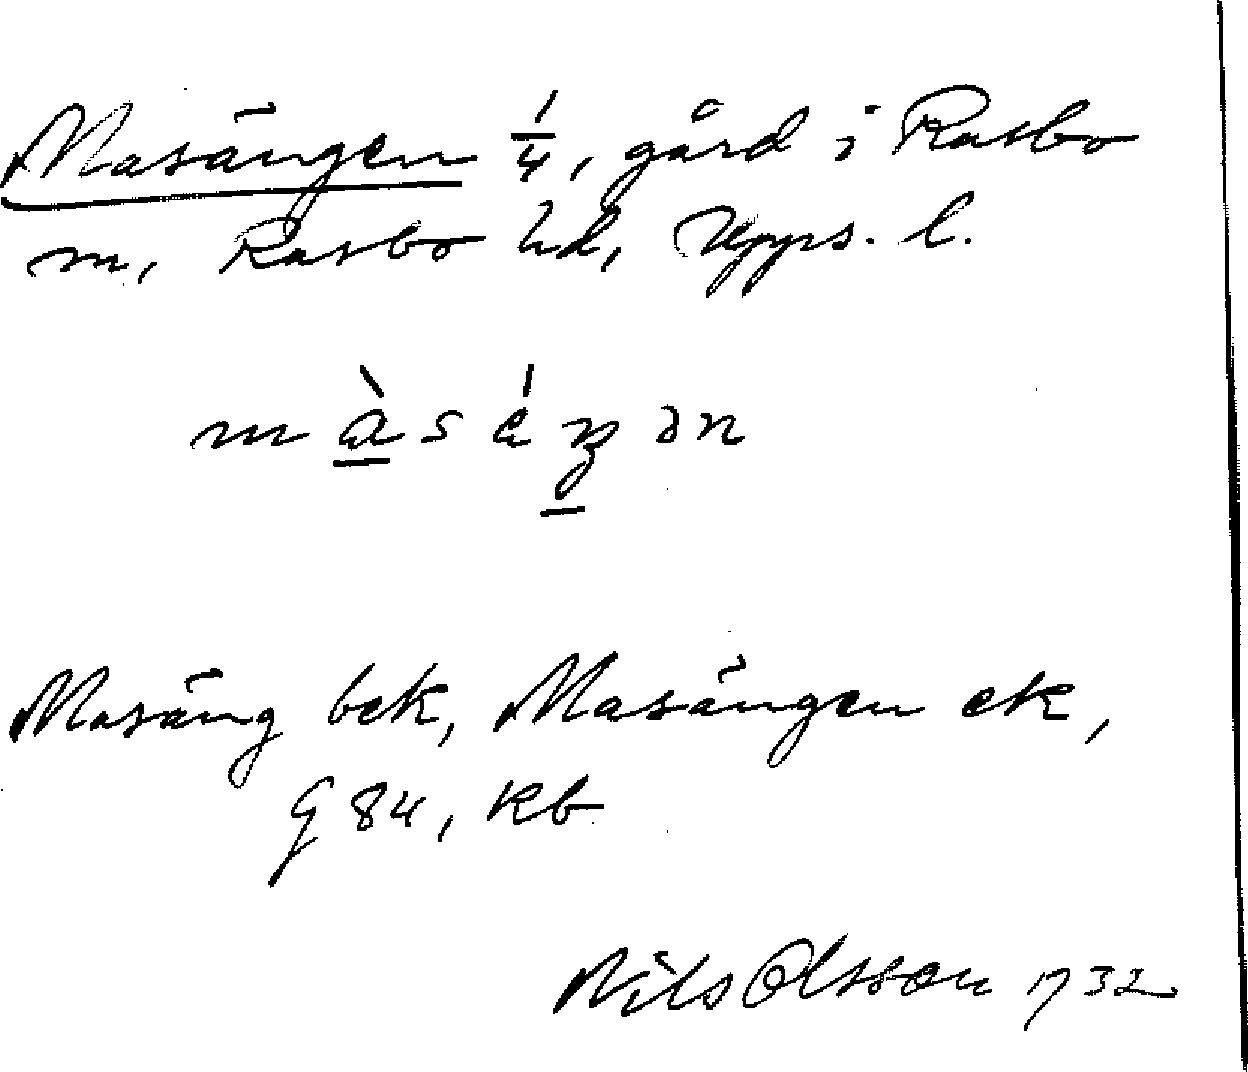 Masängen 1/4, gård i Rasbo
m, Rasbo hd, Upps. l.
màsáŋən
Masäng bek, Masängen ek,
G 84, kb
Nils Olsson 1932